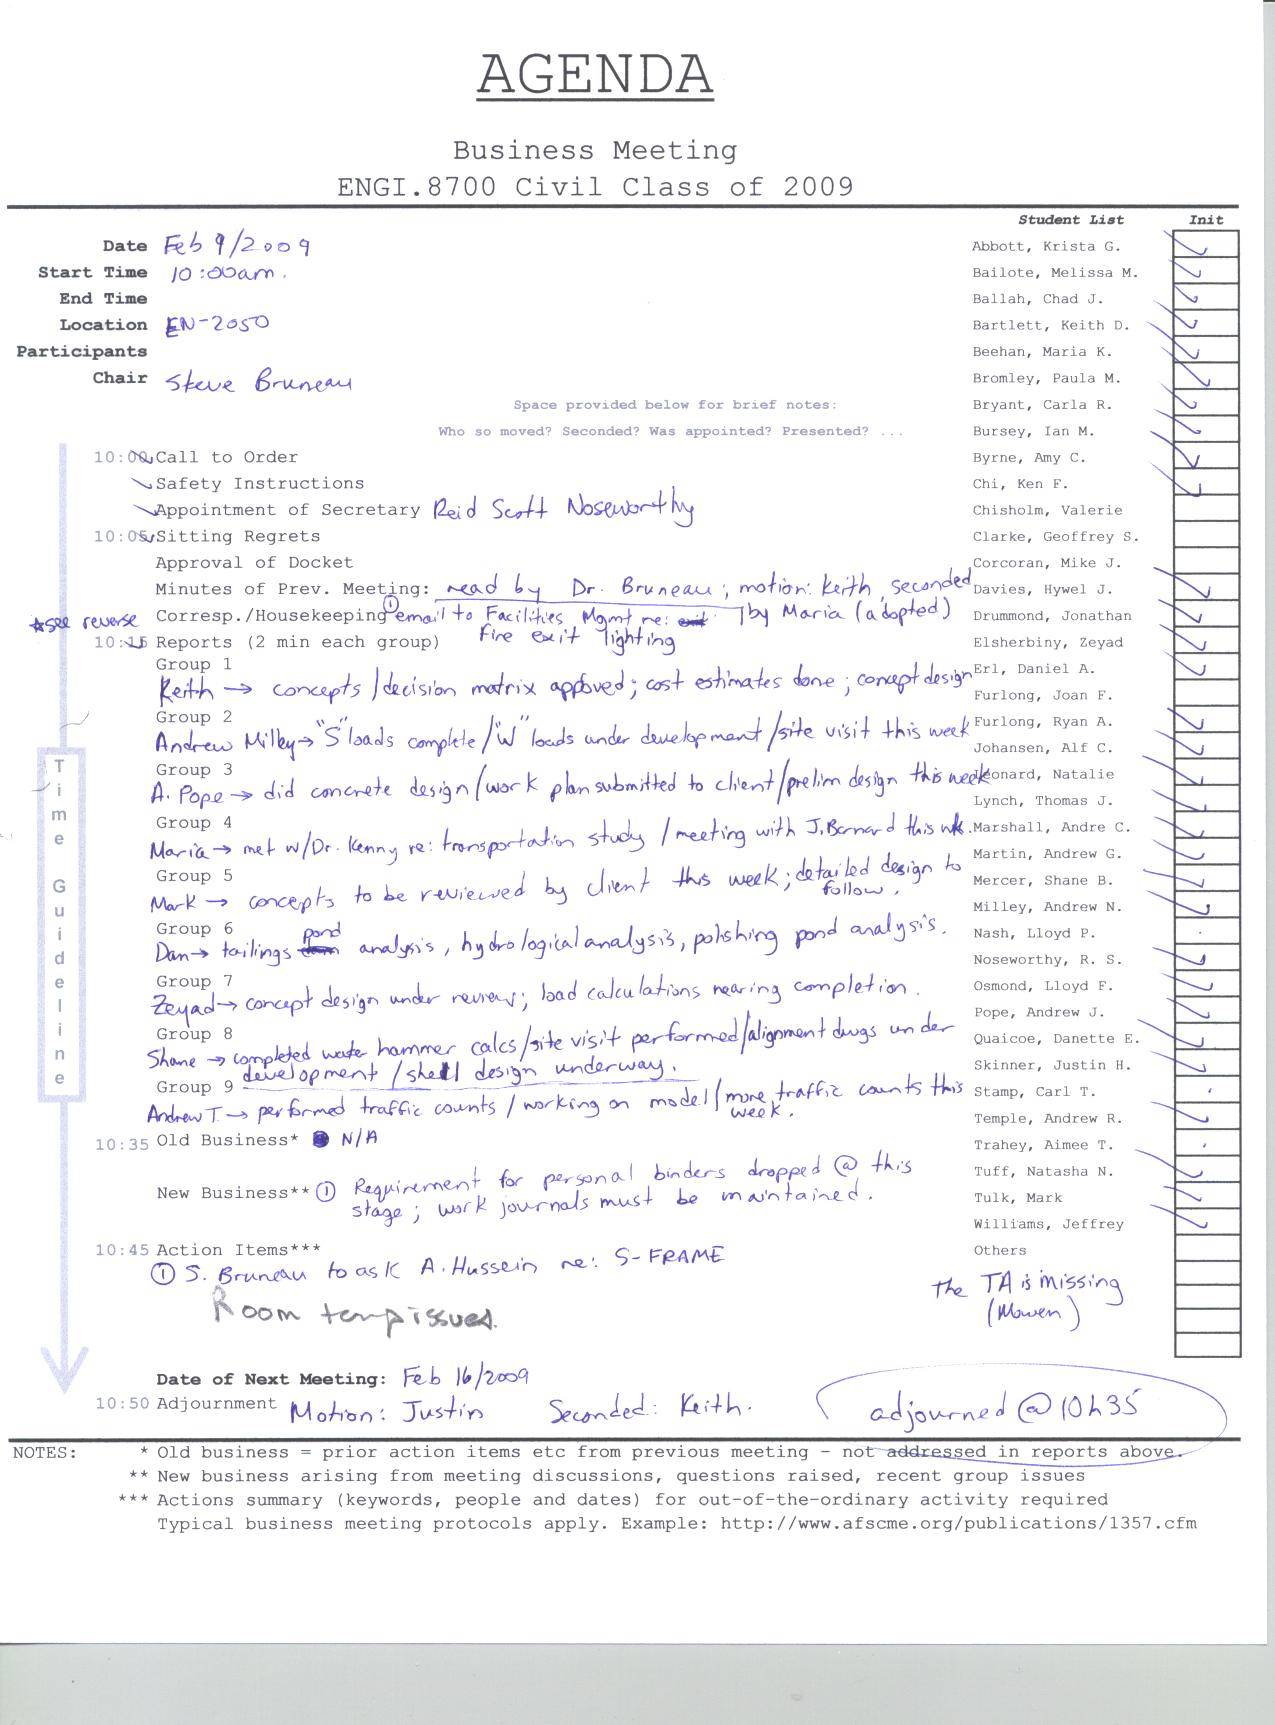 AGENDA
Business Meeting
ENGI.8700 Civil Class of 2009
Student List Init
Date Feb 9/2009
Start Time 10:00am.
End Time
Location EN-2050
Participants
Chair Steve Bruneau
Space provided below for brief notes:
Who so moved? Seconded? Was appointed? Presented? ...
10:00 Call to Order
Safety Instructions
Appointment of Secretary Reid Scott Noseworthy
10:05 Sitting Regrets
Approval of Docket
Minutes of Prev. Meeting: read by Dr. Bruneau; motion: Keith, seconded
by Maria (adopted)
*see reverse
Corresp./Housekeeping ① email to Facilities Mgmt re:
fire exit lighting
10:15 Reports (2 min each group)
Group 1
Keith → concepts/decision matrix approved; cost estimates done; concept design
Group 2
Andrew Milley → "S" loads complete/"W" loads under development/site visit this week
Group 3
A. Pope → did concrete design/work plan submitted to client/prelim design this week
Group 4
Maria → met w/Dr. Kenny re: transportation study/meeting with J. Barnard this wk.
Group 5
Mark → concepts to be reviewed by client this week; detailed design to
follow.
Group 6
Dan → tailings pond analysis, hydrological analysis, polishing pond analysis.
Group 7
Zeyad → concept design under review; load calculations nearing completion.
Group 8
Shane → completed water hammer calcs/site visit performed/alignment dwgs under
development/shell design underway.
Group 9
Andrew T. → performed traffic counts/working on model/more traffic counts this
week.
10:35 Old Business* N/A
New Business** ① Requirement for personal binders dropped @ this
stage; work journals must be maintained.
10:45 Action Items***
① S. Bruneau to ask A. Hussein re: S-FRAME
Room temp issues.
Date of Next Meeting: Feb 16/2009
10:50 Adjournment Motion: Justin Seconded: Keith.
adjourned @ 10h35
Time Guideline
Abbott, Krista G.
Bailote, Melissa M.
Ballah, Chad J.
Bartlett, Keith D.
Beehan, Maria K.
Bromley, Paula M.
Bryant, Carla R.
Bursey, Ian M.
Byrne, Amy C.
Chi, Ken F.
Chisholm, Valerie
Clarke, Geoffrey S.
Corcoran, Mike J.
Davies, Hywel J.
Drummond, Jonathan
Elsherbiny, Zeyad
Erl, Daniel A.
Furlong, Joan F.
Furlong, Ryan A.
Johansen, Alf C.
Leonard, Natalie
Lynch, Thomas J.
Marshall, Andre C.
Martin, Andrew G.
Mercer, Shane B.
Milley, Andrew N.
Nash, Lloyd P.
Noseworthy, R. S.
Osmond, Lloyd F.
Pope, Andrew J.
Quaicoe, Danette E.
Skinner, Justin H.
Stamp, Carl T.
Temple, Andrew R.
Trahey, Aimee T.
Tuff, Natasha N.
Tulk, Mark
Williams, Jeffrey
Others
the TA is missing
(Mowen)
NOTES: * Old business = prior action items etc from previous meeting - not addressed in reports above.
** New business arising from meeting discussions, questions raised, recent group issues
*** Actions summary (keywords, people and dates) for out-of-the-ordinary activity required
Typical business meeting protocols apply. Example: http://www.afscme.org/publications/1357.cfm